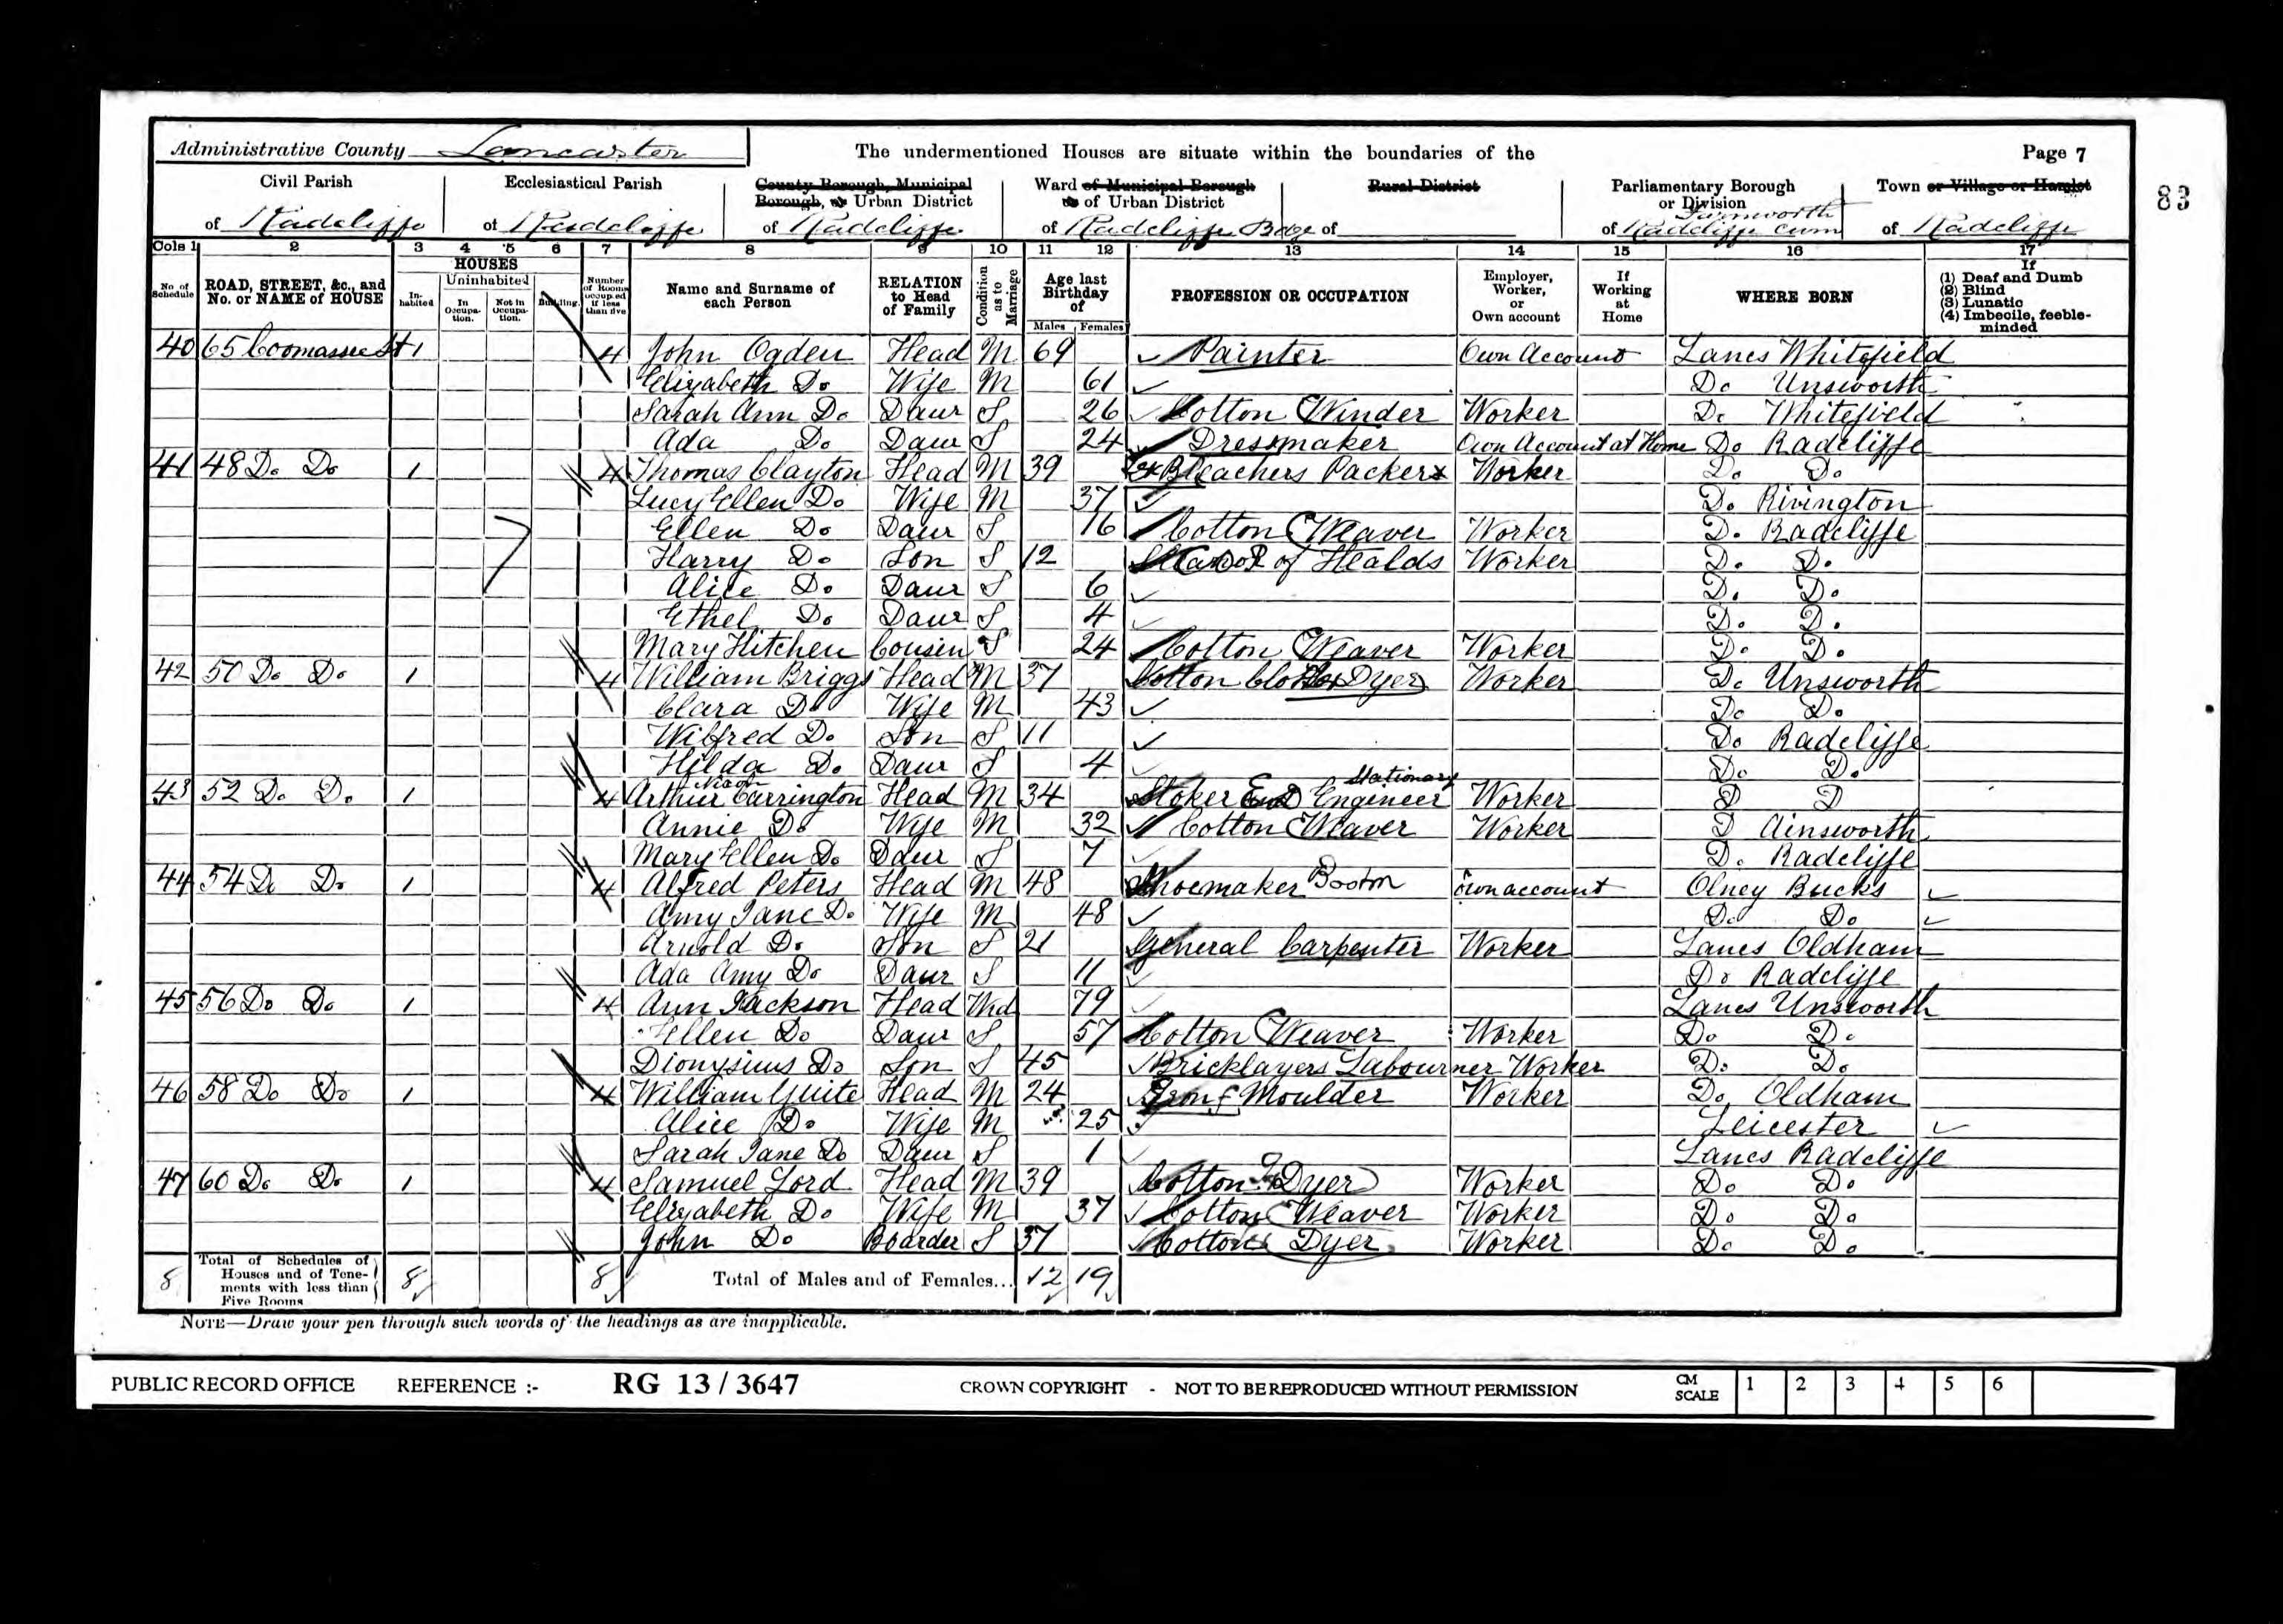 Administrative County Lancaster The undermentioned Houses are situate within the boundaries of the Page 7
Civil Parish Ecclesiastical Parish County Borough, Municipal Borough, or Urban District Ward of Municipal Borough or of Urban District Rural District Parliamentary Borough or Division Town or Village or Hamlet 83
of Radcliffe of Radcliffe of Radcliffe of Radcliffe Bdge of of Radcliffe cum Farnworth of Radcliffe
Cols 1 2 3 4 5 6 7 8 9 10 11 12 13 14 15 16 17
No. of Schedule ROAD, STREET, &c., and No. or NAME of HOUSE HOUSES Inhabited Uninhabited In Occupation. Not in Occupation. Building. Number of Rooms occupied if less than five Name and Surname of each Person RELATION to Head of Family Condition as to Marriage Age last Birthday of Males Females PROFESSION OR OCCUPATION Employer, Worker, or Own account If Working at Home WHERE BORN If (1) Deaf and Dumb (2) Blind (3) Lunatic (4) Imbecile, feeble-minded
40 65 Coomassie St 1 4 John Ogden Head M 69 Painter Own Account Lancs Whitefield
Elizabeth Do Wife M 61 Do Unsworth
Sarah Ann Do Daur S 26 Cotton Winder Worker Do Whitefield
Ada Do Daur S 24 Dressmaker Own Account at Home Do Radcliffe
41 48 Do Do 1 4 Thomas Clayton Head M 39 Bleachers Packer Worker Do Do
Lucy Ellen Do Wife M 37 Do Rivington
Ellen Do Daur S 16 Cotton Weaver Worker Do Radcliffe
Harry Do Son S 12 of Healds Worker Do Do
Alice Do Daur S 6 Do Do
Ethel Do Daur S 4 Do Do
Mary Hitchen Cousin S 24 Cotton Weaver Worker Do Do
42 50 Do Do 1 4 William Briggs Head M 37 Cotton Cloth Dyer Worker Do Unsworth
Clara Do Wife M 43 Do Do
Wilfred Do Son S 11 Do Radcliffe
Hilda Do Daur S 4 Do Do
43 52 Do Do 1 4 Arthur Nixon Carrington Head M 34 Stoker End Stationary Engineer Worker D D
Annie Do Wife M 32 Cotton Weaver Worker D Ainsworth
Mary Ellen Do Daur S 7 Do Radcliffe
44 54 Do Do 1 4 Alfred Peters Head M 48 Shoemaker Bootm own account Olney Bucks
Amy Jane Do Wife M 48 Do Do
Arnold Do Son S 21 General Carpenter Worker Lancs Oldham
Ada Amy Do Daur S 11 Do Radcliffe
45 56 Do Do 1 4 Ann Jackson Head Wid 79 Lancs Unsworth
Ellen Do Daur S 57 Cotton Weaver Worker Do Do
Dionysius Do Son S 45 Bricklayers Labourner Worker Do Do
46 58 Do Do 1 4 William Guite Head M 24 Iron Moulder Worker Do Oldham
Alice Do Wife M 25 Leicester
Sarah Jane Do Daur S 1 Lancs Radcliffe
47 60 Do Do 1 4 Samuel Lord Head M 39 Cotton Dyer Worker Do Do
Elizabeth Do Wife M 37 Cotton Weaver Worker Do Do
John Do Boarder S 37 Cotton Dyer Worker Do Do
8 Total of Schedules of Houses and of Tenements with less than Five Rooms 8 8 Total of Males and of Females... 12 19
NOTE—Draw your pen through such words of the headings as are inapplicable.
PUBLIC RECORD OFFICE REFERENCE :- RG 13 / 3647 CROWN COPYRIGHT - NOT TO BE REPRODUCED WITHOUT PERMISSION CM SCALE 1 2 3 4 5 6